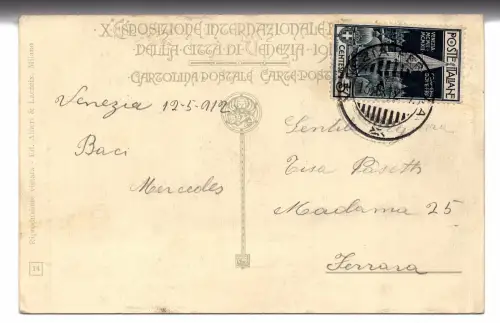 X ESPOSIZIONE INTERNAZIONALE
DELLA CITTÀ DI VENEZIA - 19
CARTOLINA POSTALE CARTE POST
POSTE ITALIANE
CENTES
Venezia 12-5-912
Baci
Mercedes
Gentile
Madama 25
Ferrara
Riproduzione vietata - Ed. Alfieri & Lacroix, Milano